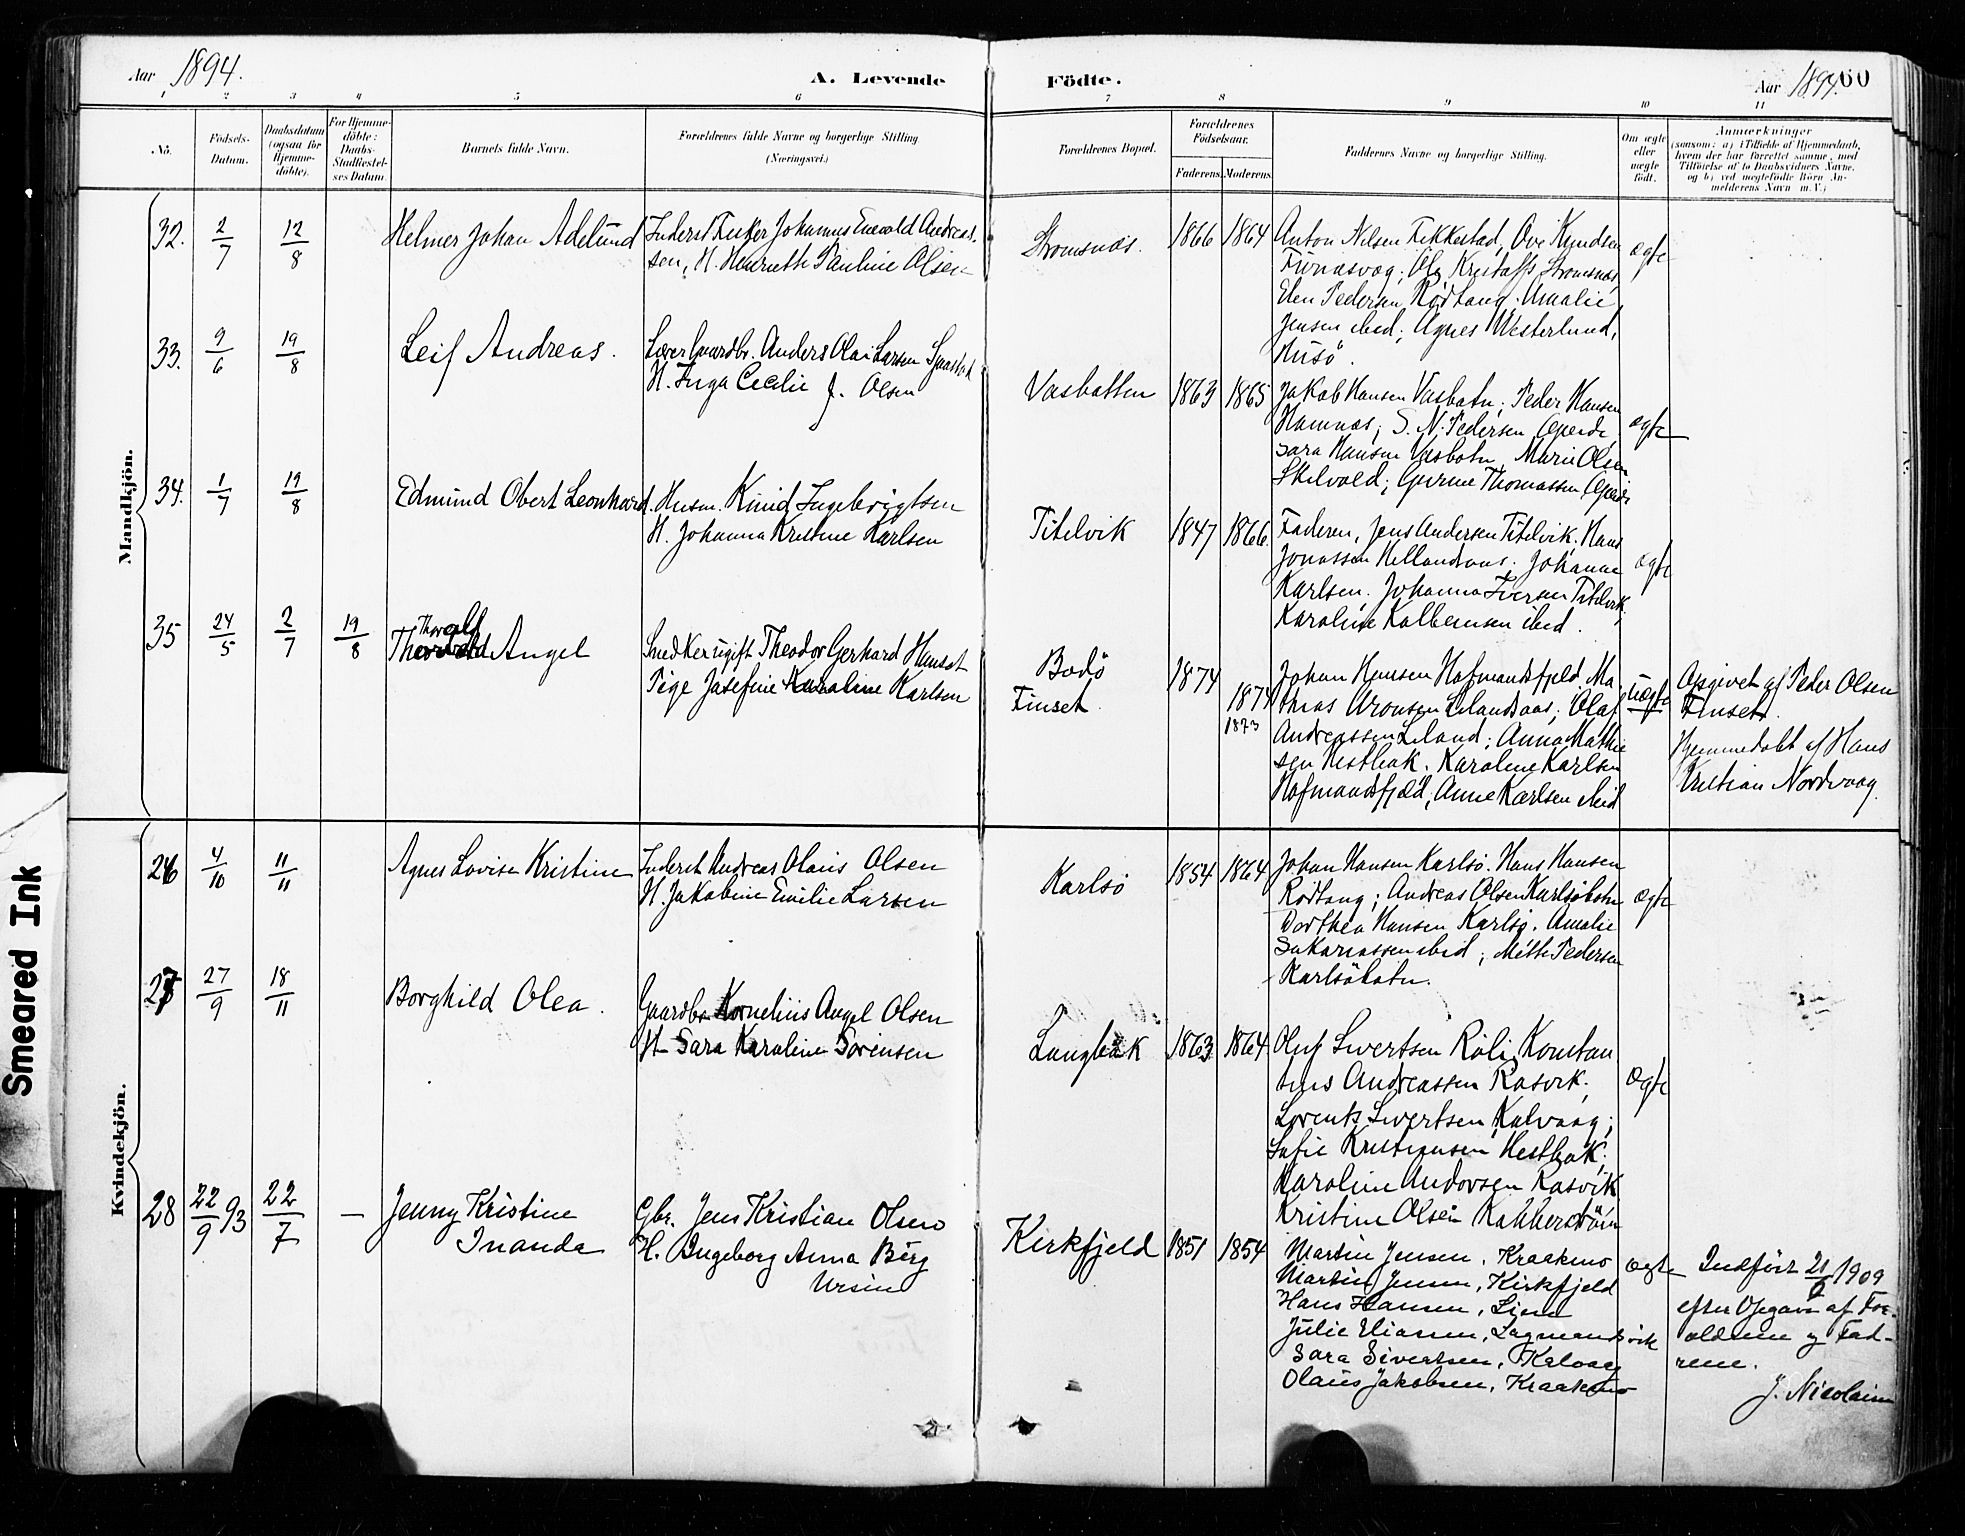 Aar 1894. A. Levende
Födte. Aar 1894. 60
1 2 3 4 5 6 7 8 9 10 11
No.
Födsels-
Datum.
Daabsdatum
(ogsaa for
Hjemme-
döbte).
For Hjemme-
döbte:
Daabs-
Stadfæstel-
ses Datum.
Barnets fulde Navn.
Forældrenes fulde Navne og borgerlige Stilling
(Næringsvei.)
Forældrenes Bopæl.
Forældrenes
Födselsaar.
Faderens. Moderens.
Faddernes Navne og borgerlige Stilling.
Om ægte
eller
uægte
födt.
Anmærkninger
(saasom: a) i Tilfælde af Hjemmedaab,
hvem der har forrettet samme, med
Tilföielse af to Daabsvidners Navne.
og b) ved uægtefödte Börn An-
melderens Navn m. V.)
Mandkjön.
32. 2/7 12/8 Helmer Johan Adelund
Inderst Fisker Johannes Enevold Andreas-
sen, H. Henriette Pauline Olsen
Stromsnæs. 1866 1864
Anton Nilsen Fikkestad, Ove Knudsen
Stromsnæs,
Elen Pedersen Rødtang. Amalie
Jensen ibid; Agnes Westerlund,
Husö.
ægte
33. 9/6 19/8 Leif Andreas.
Lærer Gaardbr. Anders Olai Larsen
H. Inga Cecilie J. Olsen
Vasbotten 1863 1865
Jakob Hansen Vasbotn; Peder Hansen
Hamnæs; S. N. Pedersen
Sara Hansen Vasbotn, Marie Olsen
Skilvold; Thomassen
ægte
34. 1/7 19/8 Edmund Obert Leonhard.
Husm. Knud Ingebrigtsen
H. Johanna Kristine Karlsen
Titelvik 1847 1866
Faderen, Jens Andersen Titelvik; Hans
Jonassen Hellandsaas. Johanne
Karlsen. Johanna Iversen Titelvik,
Karoline ibid.
ægte
35 24/5 2/7 19/8 Thoralf
Angel
Snedker ugift Theodor Gerhard Hansen
Pige Josefine Karoline Karlsen
Bodö
Finset. 1874 1874
1873
Johan Hansen Hofmandsfjeld, Ma-
thias Aronsen Lilandsaas; Olaf
Andreassen Leland; Anna Mathie
sen Hestbak. Karoline Karlsen
Hofmandsfjeld, Anne Karlsen ibid
uægte
Opgivet af Peder Olsen
Finset.
Hjemmedöbt af Hans
Kristian Nordvaag.
Kvindekjön.
26 4/10 11/11 Agnes Lovise Kristine
Inderst Andreas Olaus Olsen
H. Jakobine Emilie Larsen
Karlsö 1854 1864
Johan Hansen Karlsö. Hans Hansen
Rödtang; Andreas Olsen Karlsöbotn
Dorthea Hansen Karlsö. Amalie
Sakariassen ibid; Mette Pedersen
Karlsöbotn.
ægte
27 27/9 18/11 Borghild Olea.
Gaardbr Kornelius Angel Olsen
H. Sara Karoline Sörensen
Langbak 1863 1864
Oluf Sivertsen Röli, Konstan
tius Andreassen Rasvik.
Lorents Sivertsen Kalvaag;
Sofie Kristiansen Hestbak.
Karoline Andorsen Rasvik
Kristine Olsen Kobberström
ægte
28 22/9 93 22/7 — Jenny Kristine
Inanda
Gbr. Jens Kristian Olsen
H. Ingeborg Anna Berg
Ursin
Kirkfjeld 1851 1854
Martin Jensen, Kraakmo
Martin Jensen, Kirkfjeld
Hans Hansen,
Julie Eliassen, Lagmandsvik
Sara Sivertsen, Kalvaag
Olaus Jakobsen, Kraakmo
ægte
Indfört 1909
efter Opgave af For-
ældrene og Fad-
rene.
J. Nicolaisen
Smeared Ink